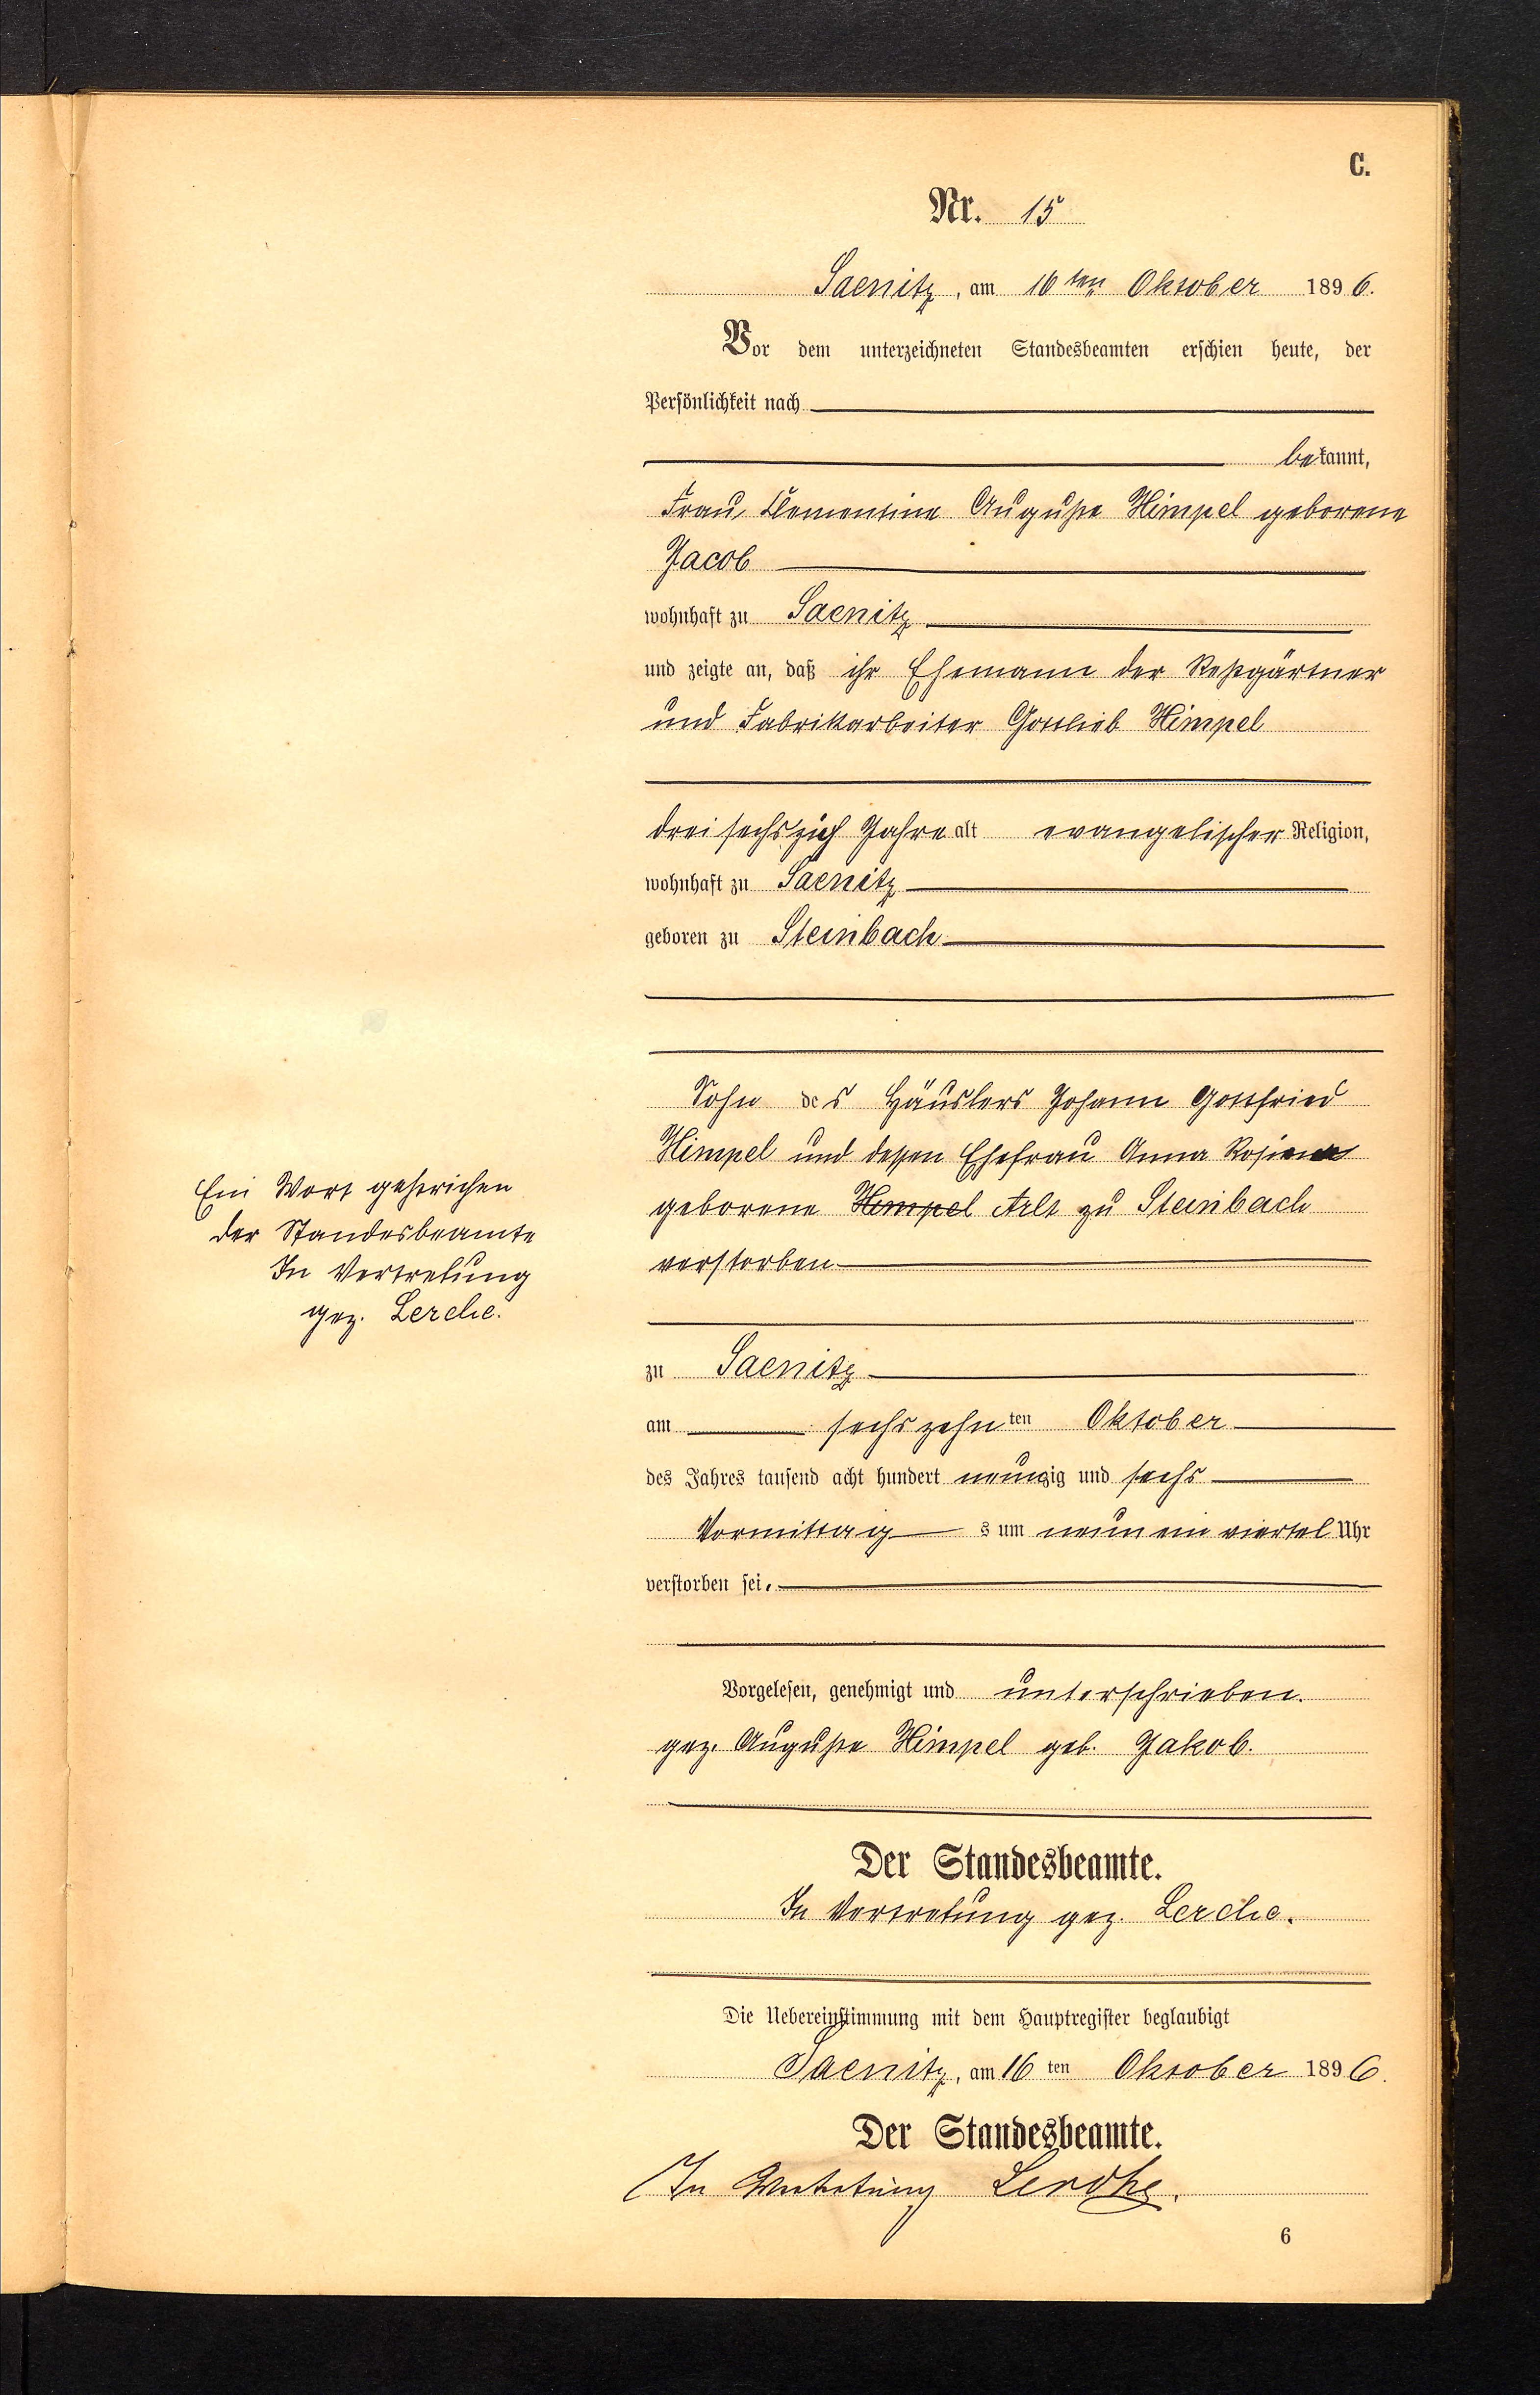 C.
Nr. 15
Saenitz, am 16ten Oktober 1896.
Vor dem unterzeichneten Standesbeamten erschien heute, der
Persönlichkeit nach
bekannt,
Frau Clementine Auguste Himpel geborene
Jacob
wohnhaft zu Saenitz
und zeigte an, daß ihr Ehemann der Restgärtner
und Fabrikarbeiter Gottlieb Himpel
drei sechszig Jahre alt evangelischer Religion,
wohnhaft zu Saenitz
geboren zu Steinbach
Sohn des Häuslers Johann Gottfried
Himpel und dessen Ehefrau Anna Rosina
geborene Himpel Arlt zu Steinbach
verstorben
Ein Wort gestrichen
der Standesbeamte
In Vertretung
gez. Lerche.
zu Saenitz
am sechszehnten Oktober
des Jahres tausend acht hundert neunzig und sechs
Vormittags um neun ein viertel Uhr
verstorben sei.
Vorgelesen, genehmigt und unterschrieben.
gez. Auguste Himpel geb. Jakob.
Der Standesbeamte.
In Vertretung gez. Lerche.
Die Uebereinstimmung mit dem Hauptregister beglaubigt
Saenitz, am 16ten Oktober 1896.
Der Standesbeamte.
In Vertretung Lerche.
6